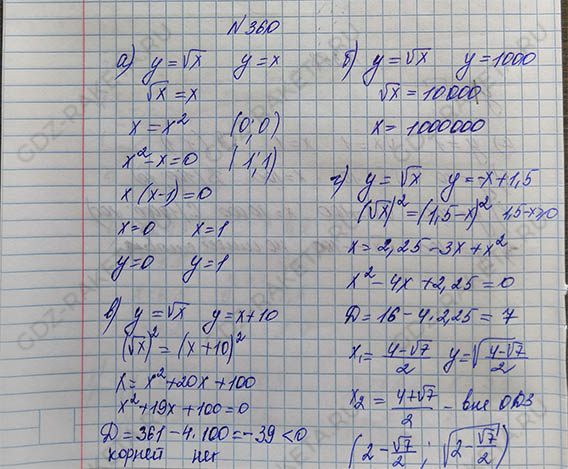 N360
а) y=√x y=x
√x = x
x = x² (0;0)
x²-x=0 (1;1)
x(x-1)=0
x=0 x=1
y=0 y=1
б) y=√x y=1000
√x = 10000
x = 1000000
в) y=√x y=x+10
(√x)²=(x+10)²
x = x²+20x+100
x²+19x+100=0
D=361-4·100=-39<0
корней нет
г) y=√x y=-x+1,5
(√x)²=(1,5-x)² 1,5-x≥0
x=2,25-3x+x²
x²-4x+2,25=0
D=16-4·2,25=7
x₁=(4-√7)/2 y=√((4-√7)/2)
x₂=(4+√7)/2 - вне ОДЗ
(2-√7/2; √(2-√7/2))
GDZ-RAKETA.RU